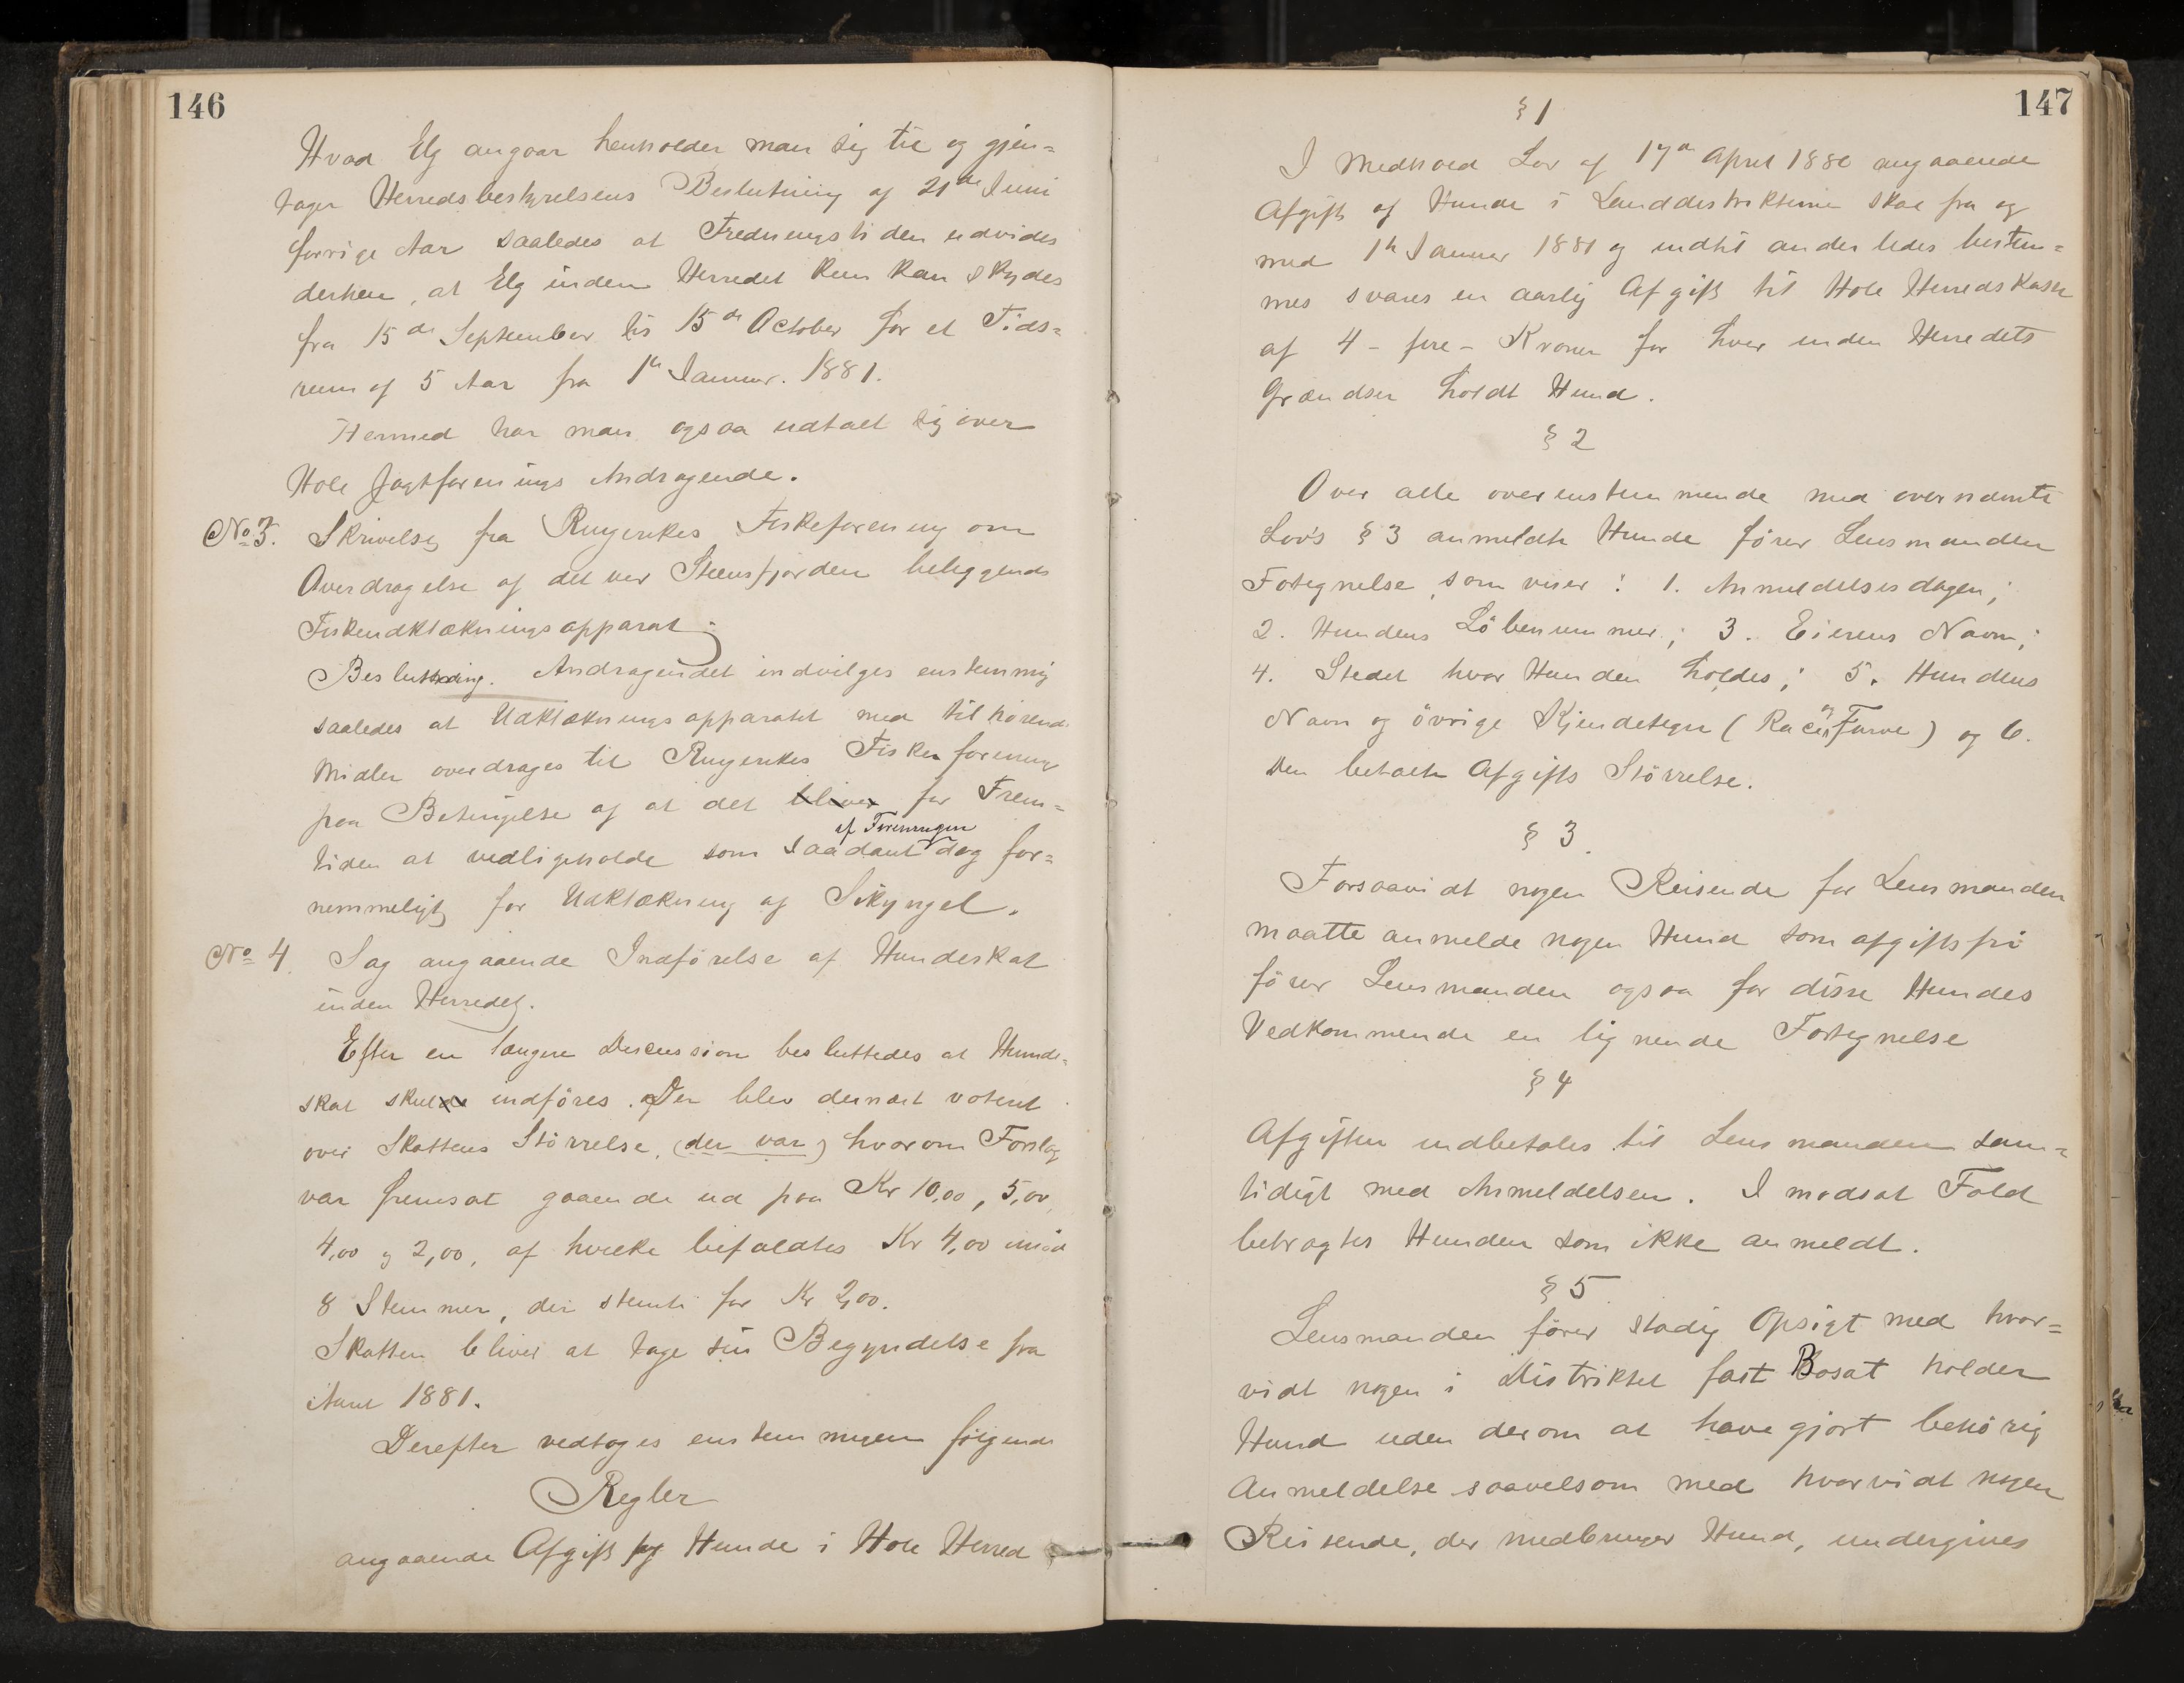 146
Hvad Elg angaar henholder man sig til og gjen=
tager Herredsbestyrelsens Beslutning af 21de Juni
forrige Aar saaledes at Fredningstiden udvides
derhen, at Elg inden Herredet kun kan skydes
fra 15de September til 15de October for et Tids=
rum af 5 Aar fra 1ste Januar. 1881.
Hermed har man ogsaa udtalt sig over
Hole Jagtforenings Andragende.
No 3. Skrivelse fra Ringerikes Fiskeforening om
Overdragelse af det ved Steensfjorden beliggende
Fiskeudklækningsapparat;
Beslutning. Andragendet indvilges enstemmig
saaledes at Udklækningsapparatet med tilhørende
Midler overdrages til Ringerikes Fiskeforening
paa Betingelse af at det bliver for Frem=
af Foreningen
tiden at vedligeholde som saadant dog for=
nemmeligt for Udklækning af Sikyngel.
No 4. Sag angaaende Indførelse af Hundeskat
inden Herredet.
Efter en længere Discussion besluttedes at Hunde=
skat skulde indføres. Der blev dernæst voteret
over Skattens Störrelse, (der var) hvorom Forslag
var fremsat gaaende ud paa Kr 10,00, 5,00,
4,00 og 2,00, af hvilke bifaldtes Kr 4,00 imod
8 Stemmer, der stemte for Kr 2,00.
Skatten bliver at tage sin Begyndelse fra
Aaret 1881.
Derefter vedtoges enstemmigen følgende
Regler
angaaende Afgift af Hunde i Hole Herred
147
§ 1
I Medhold Lov af 17de April 1880 angaaende
Afgift af Hunde i Landdistrikterne skal fra og
med 1ste Januar 1881 og indtil anderledes bestem=
mes svares en aarlig Afgift til Hole Herredskasse
af 4 - fire - Kroner for hver inden Herredets
Grændser holdt Hund.
§ 2
Over alle overenstemmende med overnævnte
Lov's § 3 anmeldte Hunde fører Lensmanden
Fortegnelse, som viser: 1. Anmeldelsesdagen;
2. Hundens Löbenummer; 3. Eierens Navn;
4. Stedet hvor Hunden holdes; 5. Hundens
Navn og övrige Kjendetegn (Race og Farve) og 6.
Den betalte Afgifts Störrelse.
§ 3.
Forsaavidt nogen Reisende for Lensmanden
maatte anmelde nogen Hund som afgiftsfri
förer Lensmanden ogsaa for disse Hundes
Vedkommende en lignende Fortegnelse
§ 4
Afgiften indbetales til Lensmanden sam=
tidigt med Anmeldelsen. I modsat Fald
betragtes Hunden som ikke anmeldt.
§ 5
Lensmanden förer stadig Opsigt med hvor=
vidt nogen i Distriktet fast Bosat holder
Hund uden derom at have gjort behörig
Anmeldelse saavelsom med hvorvidt nogen
Reisende, der medbringer Hund, undergives